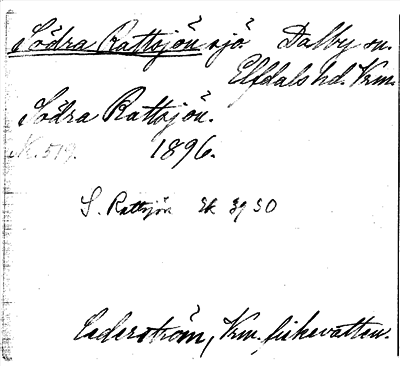 Södra Rattsjön sjö. Dalby sn.
Elfdals hd. Vrm.
Södra Rattsjön.
N. 519. 1896.
S. Rattsjön Ek 39 SO
Cederström, Vrm. fiskevatten.